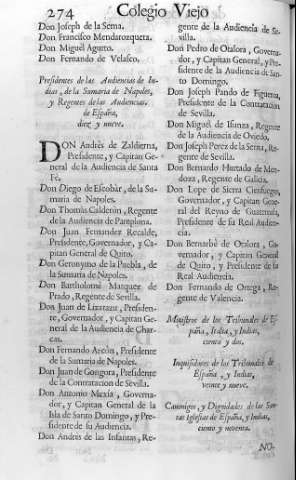 274 Colegio Viejo
Don Joseph de la Serna.
Don Francisco Mendarozqueta.
Don Miguel Agurto.
Don Fernando de Velasco.
Presidentes de las Audiencias de Indias, de la Sumaria de Napoles,
y Regentes de las Audiencias
de España,
diez y nueve.
DON Andrès de Zaldierna,
Presidente, y Capitan General de la Audiencia de Santa
Fè.
Don Diego de Escobàr, de la Sumaria de Napoles.
Don Thomàs Calderòn, Regente
de la Audiencia de Pamplona.
Don Juan Fernandez Recalde,
Presidente, Governador, y Capitan General de Quito.
Don Geronymo de la Puebla, de
la Sumaria de Napoles.
Don Bartholomè Marquez de
Prado, Regente de Sevilla.
Don Juan de Lizarazu, Presidente, Governador, y Capitan General de la Audiencia de Charcas.
Don Fernando Arcòn, Presidente
de la Sumaria de Napoles.
Don Juan de Gongora, Presidente
de la Contratacion de Sevilla.
Don Antonio Maxia, Governador, y Capitan General de la
Isla de Santo Domingo, y Presidente de su Audiencia.
Don Andrès de las Infantas, Regente de la Audiencia de Sevilla.
Don Pedro de Otalora, Governador, y Capitan General, y Presidente de la Audiencia de Santo Domingo.
Don Joseph Pando de Figueroa,
Presidente de la Contratacion
de Sevilla.
Don Miguel de Isunza, Regente
de la Audiencia de Oviedo.
Don Joseph Perez de la Serna, Regente de Sevilla.
Don Bernardo Hurtado de Mendoza, Regente de Galicia.
Don Lope de Sierra Cienfuegos,
Governador, y Capitan General del Reyno de Guatemala,
Presidente de su Real Audiencia.
Don Bernabè de Otalora, Governador, y Capitan General
de Quito, y Presidente de su
Real Audiencia.
Don Fernando de Ortega, Regente de Valencia.
Ministros de los Tribunales de España, Italia, y Indias,
ciento y dos.
Inquisidores de los Tribunales de
España, y Indias,
veinte y nueve.
Canonigos, y Dignidades de las Santas Iglesias de España, y Indias,
ciento y noventa.
NO-